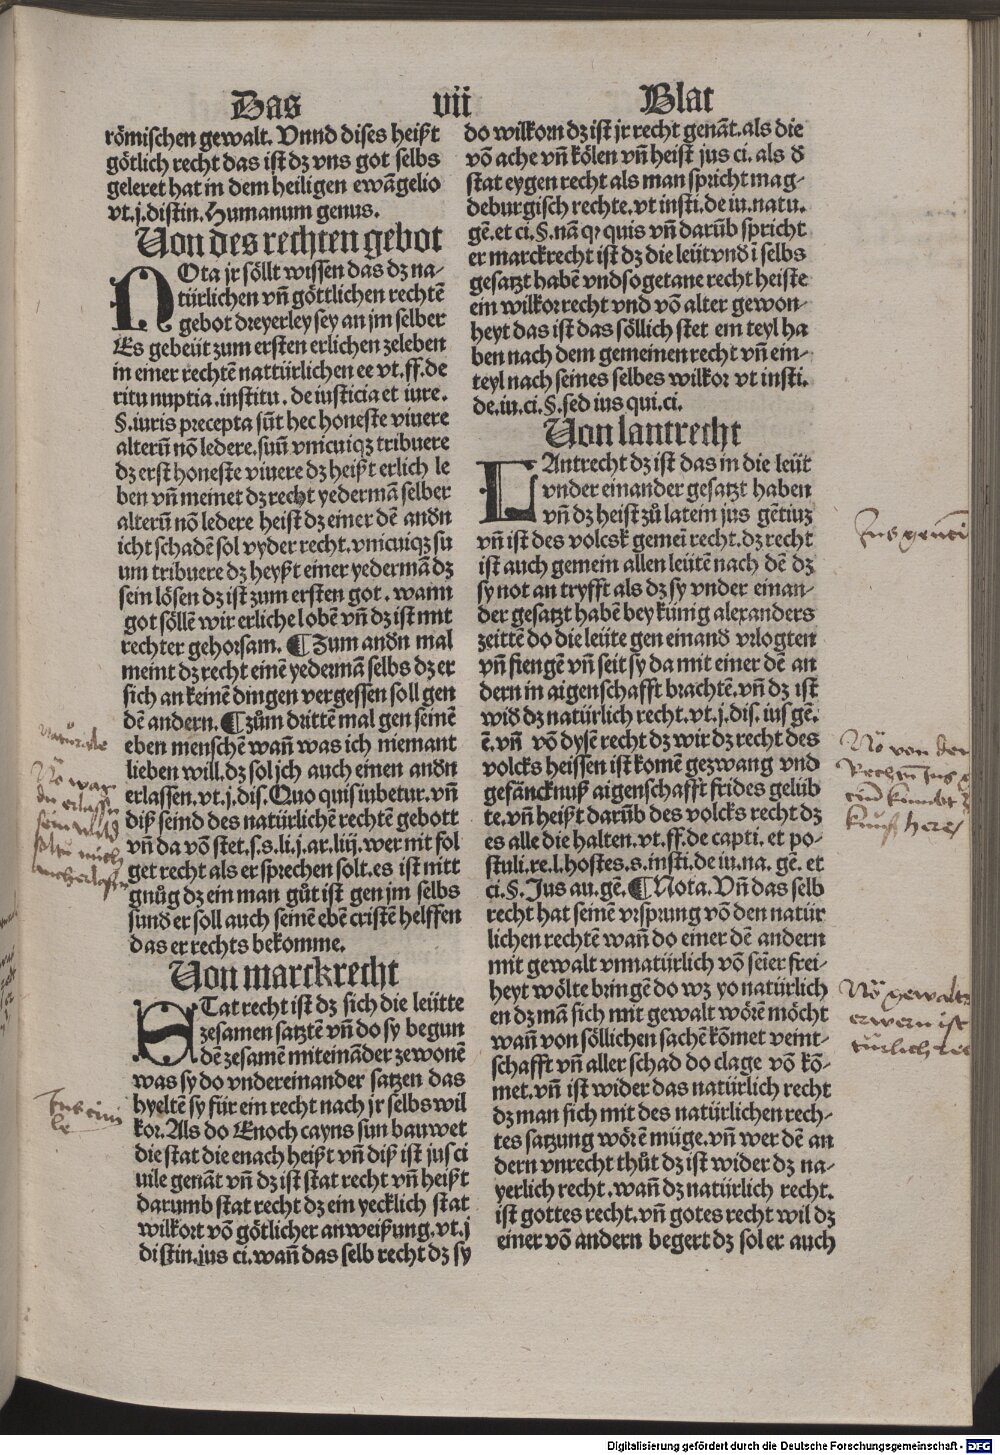 Das vii Blat
römischen gewalt. Vnnd dises heißt
götlich recht das ist dz vns got selbs
geleret hat in dem heiligen ewāgelio
vt.j.distin.Humanum genus.
Von des rechten gebot
NOta jr söllt wissen das dz na-
türlichen vn̄ göttlichen rechtē
gebot dreyerley sey an jm selber
Es gebeüt zum ersten erlichen zeleben
in einer rechtē nattürlichen ee vt.ff.de
ritu nuptia.institu.de iusticia et iure.
§.iuris precepta sūt hec honeste viuere
alterū nō ledere.suū vnicuiqz tribuere
dz erst honeste viuere dz heißt erlich le
ben vn̄ meinet dz recht yedermā selber
alterū nō ledere heist dz einer dē andn
icht schadē sol wyder recht.vnicuiqz su
um tribuere dz heyßt einer yedermā dz
sein lösen dz ist zum ersten got. wann
got söllē wir erliche lobēn vn̄ dz ist mit
rechter gehorsam. ¶ Zum andn mal
meint dz recht einē yedermā selbs dz er
sich an keinē dingen vergessen soll gen
dē andern. ¶ zům drittē mal gen seinē
eben menschē wan̄ was ich niemant
lieben will.dz sol jch auch einen andn
erlassen.vt.j.dis.Quo quis iubetur.vn̄
diß seind des natürlichē rechtē gebott
vn̄ da vō stet.s.s.li.j.ar.liij.wer nit fol
get recht als er sprechen solt.es ist nitt
gnůg dz ein man gůt ist gen jm selbs
sund er soll auch seinē ebē cristē helffen
das er rechts bekomme.
Von marckrecht
STat recht ist dz sich die leütte
zesamen satztē vn̄ do sy begun
dē zesamē miteināder zewonē
was sy do vndereinander satzen das
hyeltē sy für ein recht nach jr selbs wil
kor.Als do Enoch cayns sun bauwet
die stat die enach heißt vn̄ diß ist jus ci
uile genāt vn̄ dz ist stat recht vn̄ heißt
darumb stat recht dz ein yecklich stat
wilkort vō götlicher anweißung.vt.j
distin.jus ci.wan̄ das selb recht dz sy
do wilkorn dz ist jr recht genāt.als die
vō ache vn̄ kölen vn̄ heist jus ci. als d
stat eygen recht als man spricht mag-
deburgisch rechte.vt insti.de iu.natu.
gē.et ci.§.nā qꝫ quis vn̄ darūb spricht
er marckrecht ist dz die leüt vnd i selbs
gesatzt habē vnd sogetane recht heiste
ein wilkorrecht vnd vō alter gewon-
heyt das ist das söllich stet ein teyl ha
ben nach dem gemeinen recht vn̄ ein-
teyl nach seines selbes wilkor vt insti.
de.iu.ci.§.sed ius qui.ci.
Von lantrecht
LAntrecht dz ist das in die leüt
vnder einander gesatzt haben
vn̄ dz heist zů latein jus gētiuz
vn̄ ist des volcsk gemei recht.dz recht
ist auch gemein allen leütē nach dē dz
sy not an tryfft als dz sy vnder einan-
der gesatzt habē bey künig alexanders
zeittē do die leüte gen einand vrlogten
vn̄ fiengē vn̄ seit sy da mit einer dē an
dern in aigenschafft brachtē.vn̄ dz ist
wid dz natürlich recht.vt.j.dis.ius gē.
ē.vn̄ vō dysē recht dz wir dz recht des
volcks heissen ist komē gezwang vnd
gefäncknuß aigenschafft frides gelüb
te.vn̄ heißt darūb des volcks recht dz
es alle die halten.vt.ff.de capti.et po-
stuli.re.l.hostes.s.insti.de iu.na. gē. et
ci.§.Jus au.gē. ¶ Nota. Vn̄ das selb
recht hat seinē vrsprung vō den natür
lichen rechtē wan̄ do einer dē andern
mit gewalt vnnatürlich vō seīer frei-
heyt wölte bringē do wz yo natürlich
en dz mā sich mit gewalt wörē möcht
wan̄ von söllichen sachē kōmet veint-
schafft vn̄ aller schad do clage vō kō-
met.vn̄ ist wider das natürlich recht
dz man sich mit des natürlichen rech-
tes satzung wörē müge.vn̄ wer dē an
dern vnrecht thůt dz ist wider dz na-
yerlich recht.wan̄ dz natürlich recht.
ist gottes recht.vn̄ gotes recht wil dz
einer vō andern begert dz sol er auch
Jus gentiū
Nō von den
Nō gewalt
erwern ist
türlich
Nō was
Jus ciui
le
Digitalisierung gefördert durch die Deutsche Forschungsgemeinschaft - DFG